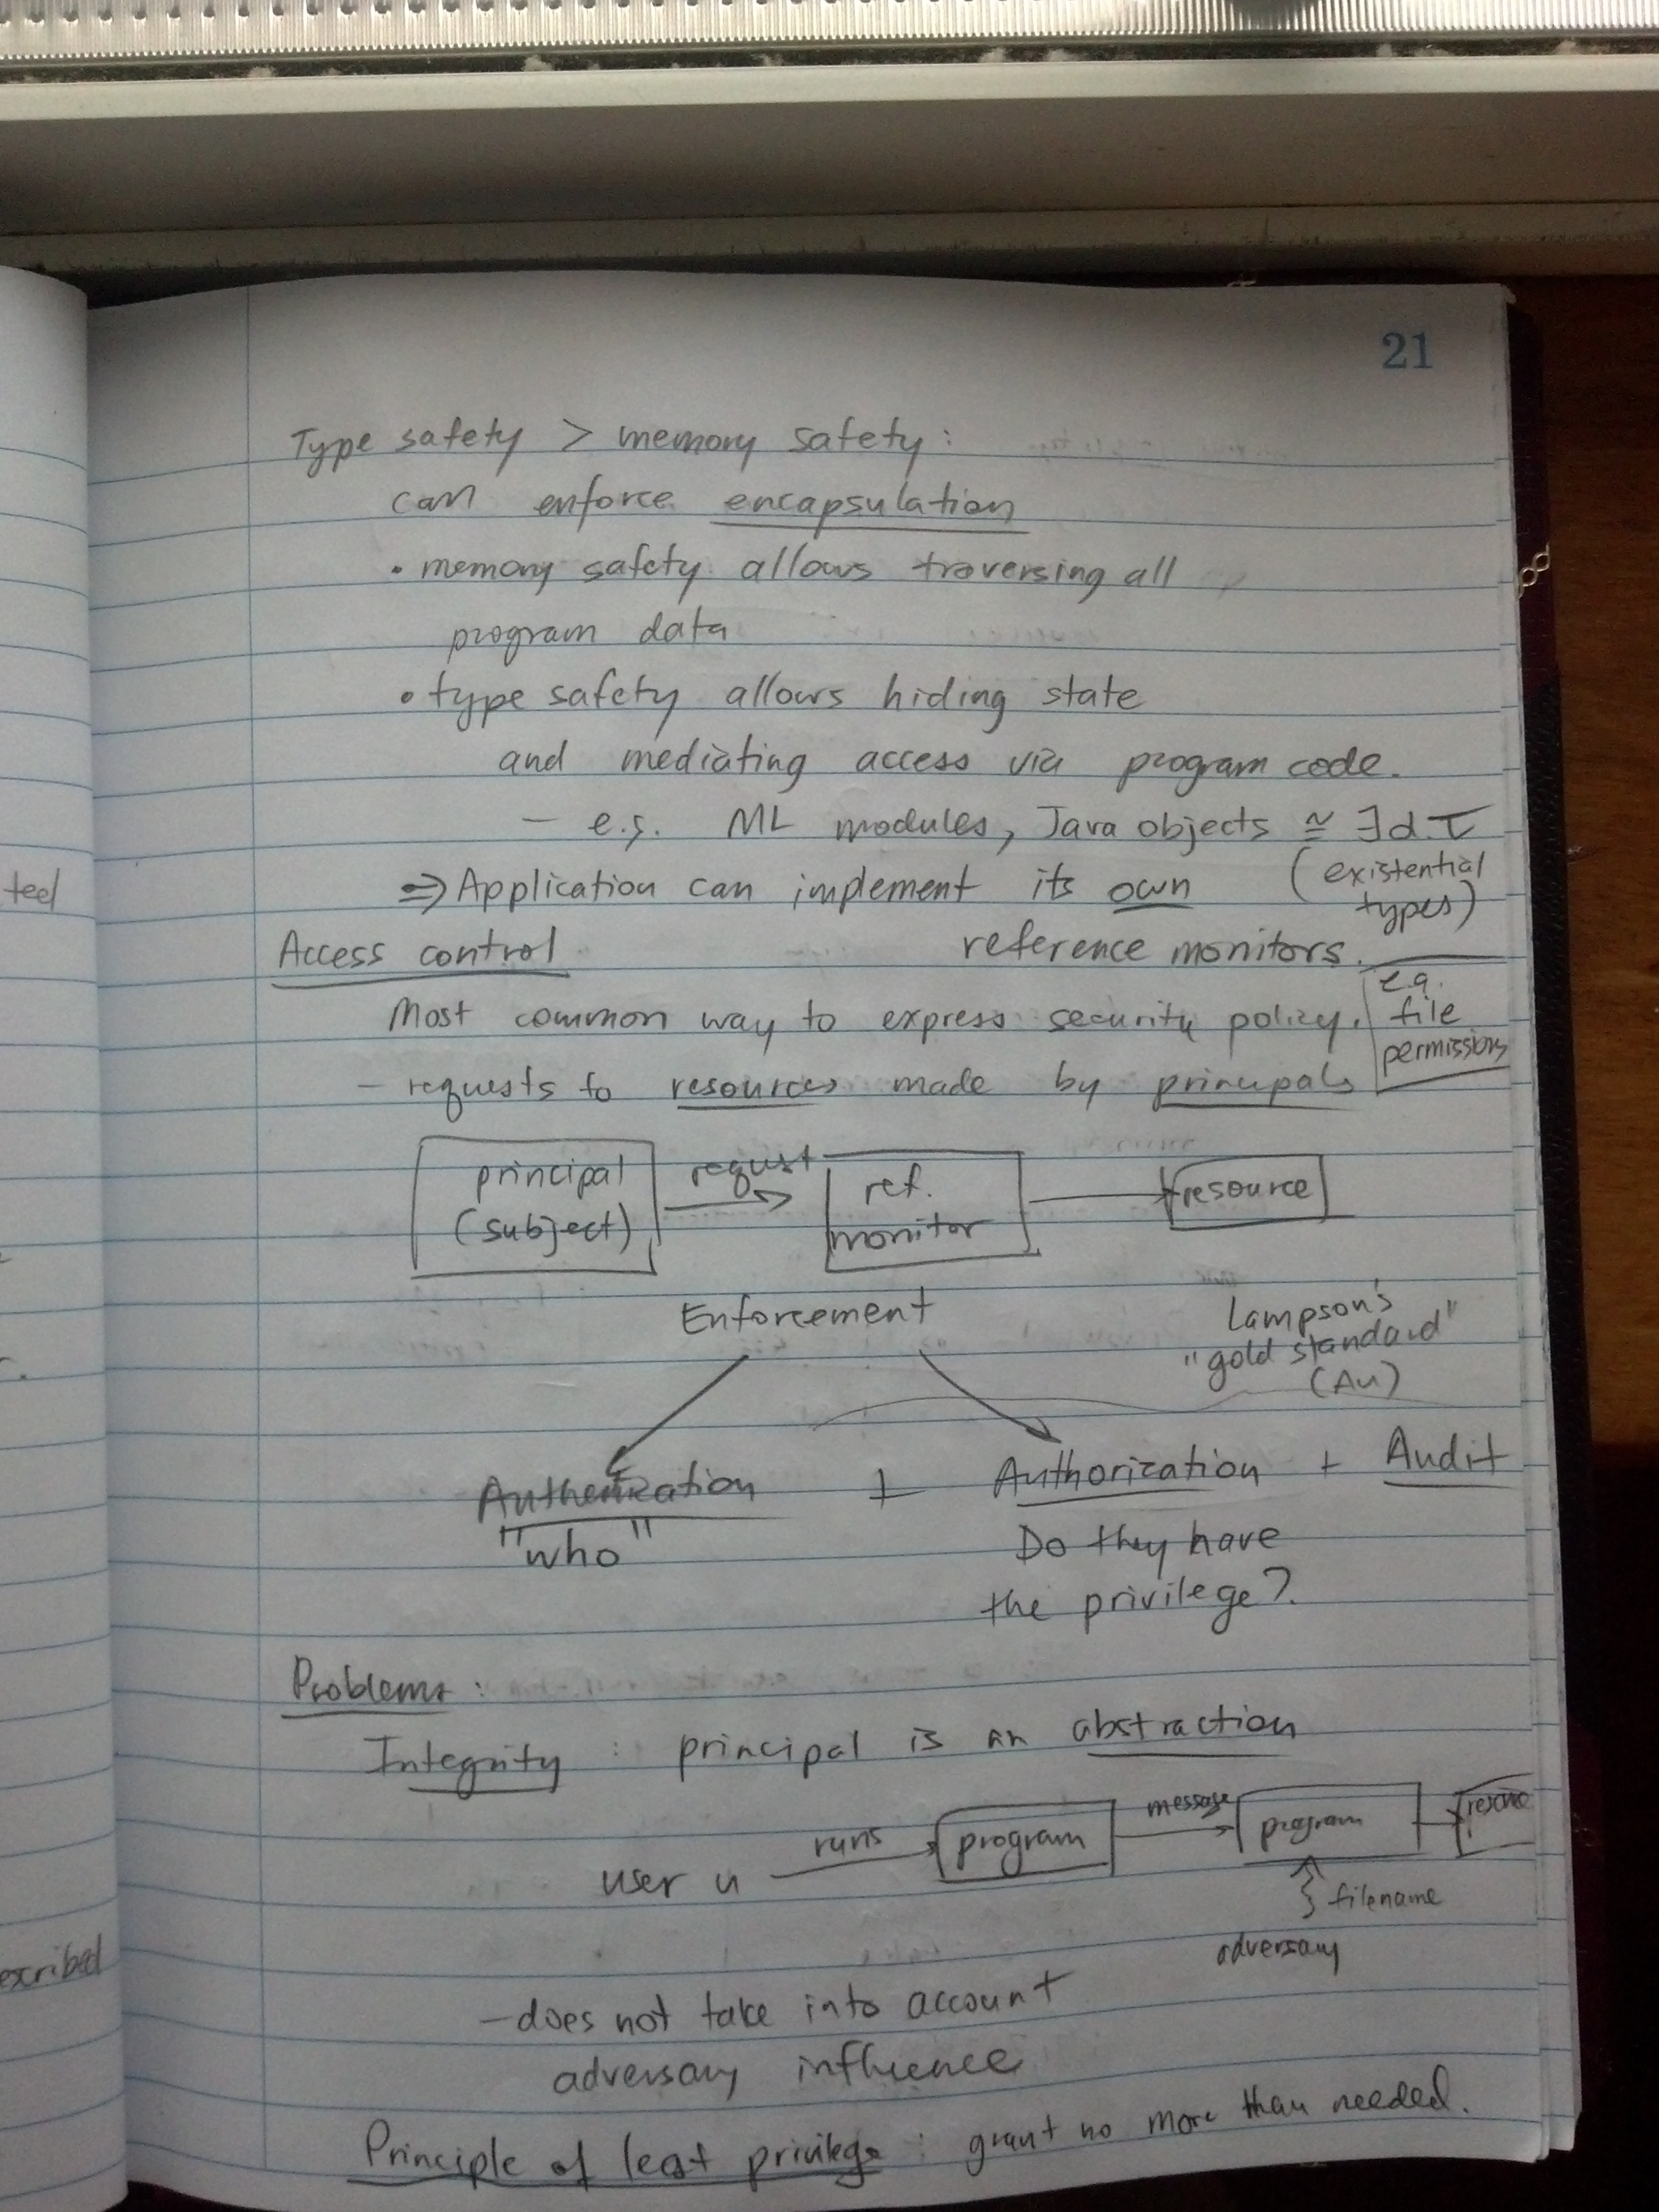 21
Type safety > memory safety:
can enforce encapsulation
• memory safety allows traversing all
program data
• type safety allows hiding state
and mediating access via program code.
- e.g. ML modules, Java objects ≅ ∃α.τ
(existential
types)
⇒ Application can implement its own
reference monitors.
Access control
Most common way to express security policy.
e.g.
file
permissions
- requests to resources made by principals
principal
(subject)
request
ref.
monitor
resource
Enforcement
Lampson's
"gold standard"
(Au)
Authentication + Authorization + Audit
"who"
Do they have
the privilege?
Problems:
Integrity: principal is an abstraction
user u
runs
program
message
program
filename
adversary
- does not take into account
adversary influence
Principle of least privilege: grant no more than needed.
teel
escribed